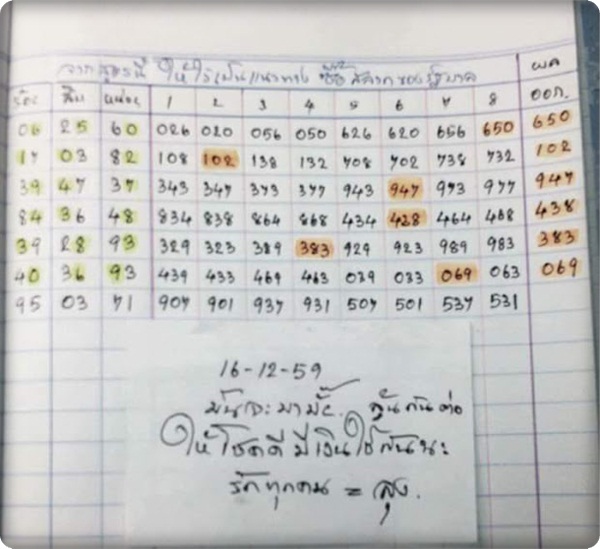 จากสูตรนี้ ให้ไว้เป็นแนวทาง ซื้อสลากของรัฐบาล ผล
ร้อย สิบ หน่วย 1 2 3 4 5 6 7 8 ออก.
06 25 60 026 020 056 050 626 620 656 650 650
17 03 82 108 102 138 132 708 702 738 732 102
39 47 37 343 347 373 377 943 947 973 977 947
84 36 48 834 838 864 868 434 428 464 468 438
39 28 93 329 323 389 383 929 923 989 983 383
40 36 93 439 433 469 463 039 033 069 063 069
95 03 71 907 901 937 931 507 501 537 531
16-12-59
มันจะมามั๊ย. ลุ้นกันต่อ
ให้โชคดี มีเงินใช้กันนะ
รักทุกคน = ลุง.